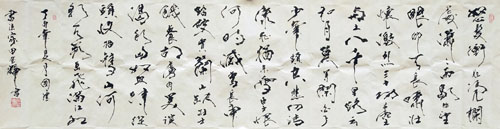 怒髮衝冠憑欄
處瀟瀟雨歇抬望
眼仰天長嘯壯
懷激烈三十功名塵
與土八千里路雲
和月莫等閑白了
少年頭空悲切靖
康恥猶未雪臣子恨
何時滅駕長車
踏破賀蘭山缺壯志
飢餐胡虜肉笑談
渴飲匈奴血待從
頭收拾舊山河
朝天闕岳飛滿江紅
丁亥年